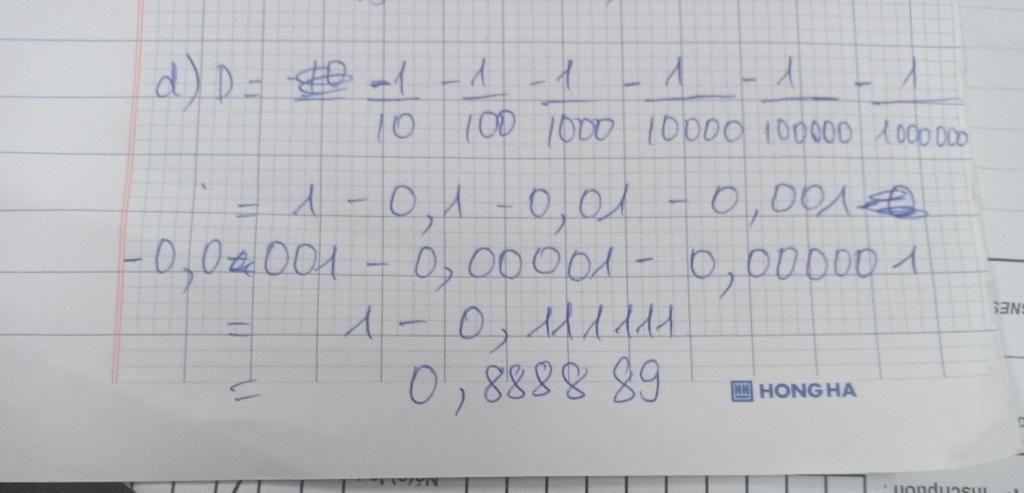 d) D = -1/10 - 1/100 - 1/1000 - 1/10000 - 1/100000 - 1/1000000
= 1 - 0,1 - 0,01 - 0,001
- 0,0001 - 0,00001 - 0,000001
= 1 - 0,111111
= 0,888889
HONG HA